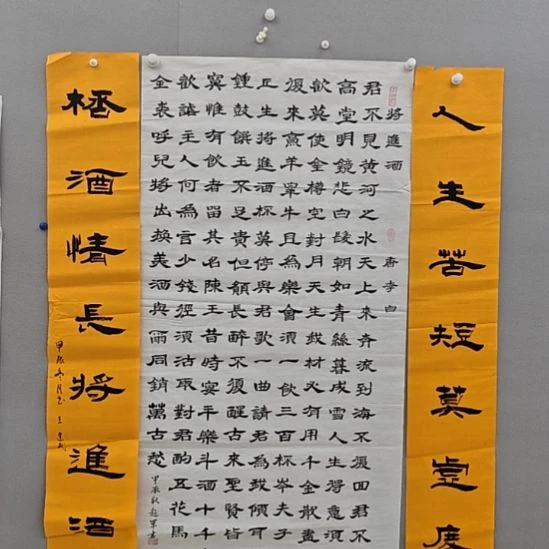 人生苦短莫虛度
將進酒 唐李白
君不見黃河之水天上來奔流到海不復回君不
高堂明鏡悲白髮朝如青絲暮成雪人生得意須
歡莫使金樽空對月天生我材必有用千金散盡
復來烹羊宰牛且為樂會須一飲三百杯岑夫子
丘生將進酒杯莫停與君歌一曲請君為我傾耳
鍾鼓饌玉不足貴但願長醉不復醒古來聖賢皆
寞惟有飲者留其名陳王昔時宴平樂斗酒十千
歡謔主人何為言少錢徑須沽取對君酌五花馬
金裘呼兒將出換美酒與爾同銷萬古愁
甲辰秋趙軍書
桮酒情長將進酒
甲辰冬月